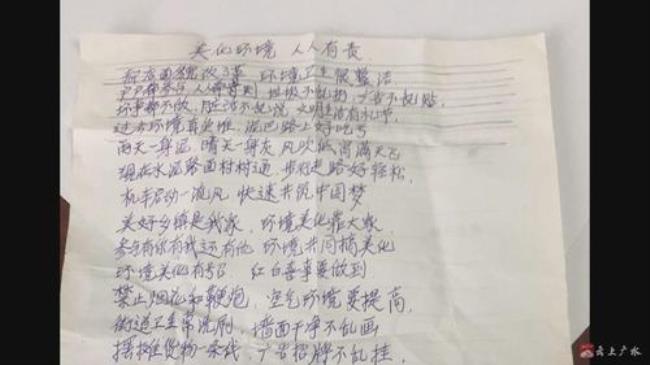 美化环境 人人有责
环境卫生很整洁
户户都参与,人人都有责 垃圾不乱扔,广告不乱贴,
坏事都不做,脏话不乱说 文明生活有礼节,
过去环境真尖堆,泥巴路上好吃亏
雨天一身泥 晴天一身灰 风吹 满天飞
现在水泥路面村村通,步行走路好轻松,
机车启动一流风 快速共筑中国梦
美好乡镇是我家,环境美化靠大家
参与有你有我还有他 环境共同搞美化
环境美化有号召 红白喜事要做到
禁止烟花和鞭炮,空气环境要提高,
街道卫生常洗刷,墙面干净不乱画
摆摊货物一条线,广告招牌不乱挂,
云上广水